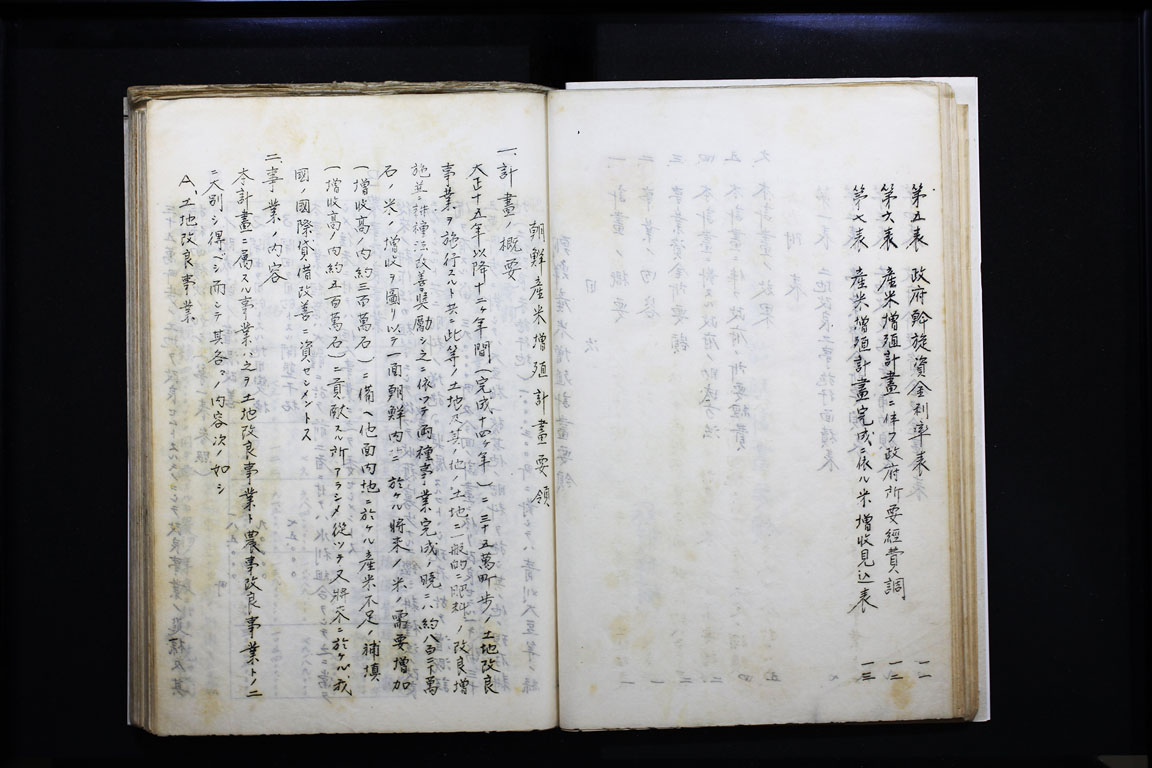 第五表 政府斡旋資金利率表 一一
第六表 産米増殖計畫ニ伴フ政府所要經費調 一二
第七表 産米増殖計畫完成ニ依ル米増收見込表 一三
朝鮮産米増殖計畫要領
一、計畫ノ概要
大正十五年以降十二ヶ年間(完成、十四ヶ年)ニ三十五萬町歩ノ土地改良
事業ヲ施行スルト共ニ此等ノ土地及其ノ他ノ土地ニ一般的ニ肥料ノ改良増
施並ニ耕種法改善奬勵シ之ニ依ツテ両種事業完成ノ曉ニハ約八百二十萬
石ノ米ノ増收ヲ圖リ以テ一面朝鮮内ニ於ケル將來ノ米ノ需要増加
(増收高ノ内約三百萬石)ニ備ヘ他面内地ニ於ケル産米不足ノ補塡
(増收高ノ内約五百萬石)ニ貢献スル所アラシメ從ツテ又將來ニ於ケル我
國ノ國際貸借改善ニ資セシメントス
二、事業ノ内容
本計畫ニ屬スル事業ハ之ヲ土地改良事業ト農事改良事業トノ二
ニ大別シ得ベシ而シテ其各々ノ内容次ノ如シ
A、土地改良事業